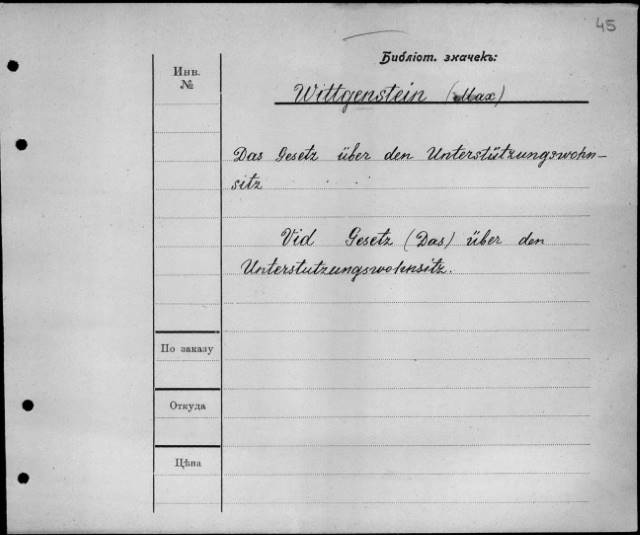 45
Библіот. значекъ:
Инв.
№
Wittgenstein (Max)
Das Gesetz über den Unterstützungswohn–
sitz
Vid Gesetz (Das) über den
Unterstutzungswohnsitz.
По заказу
Откуда
Цѣна